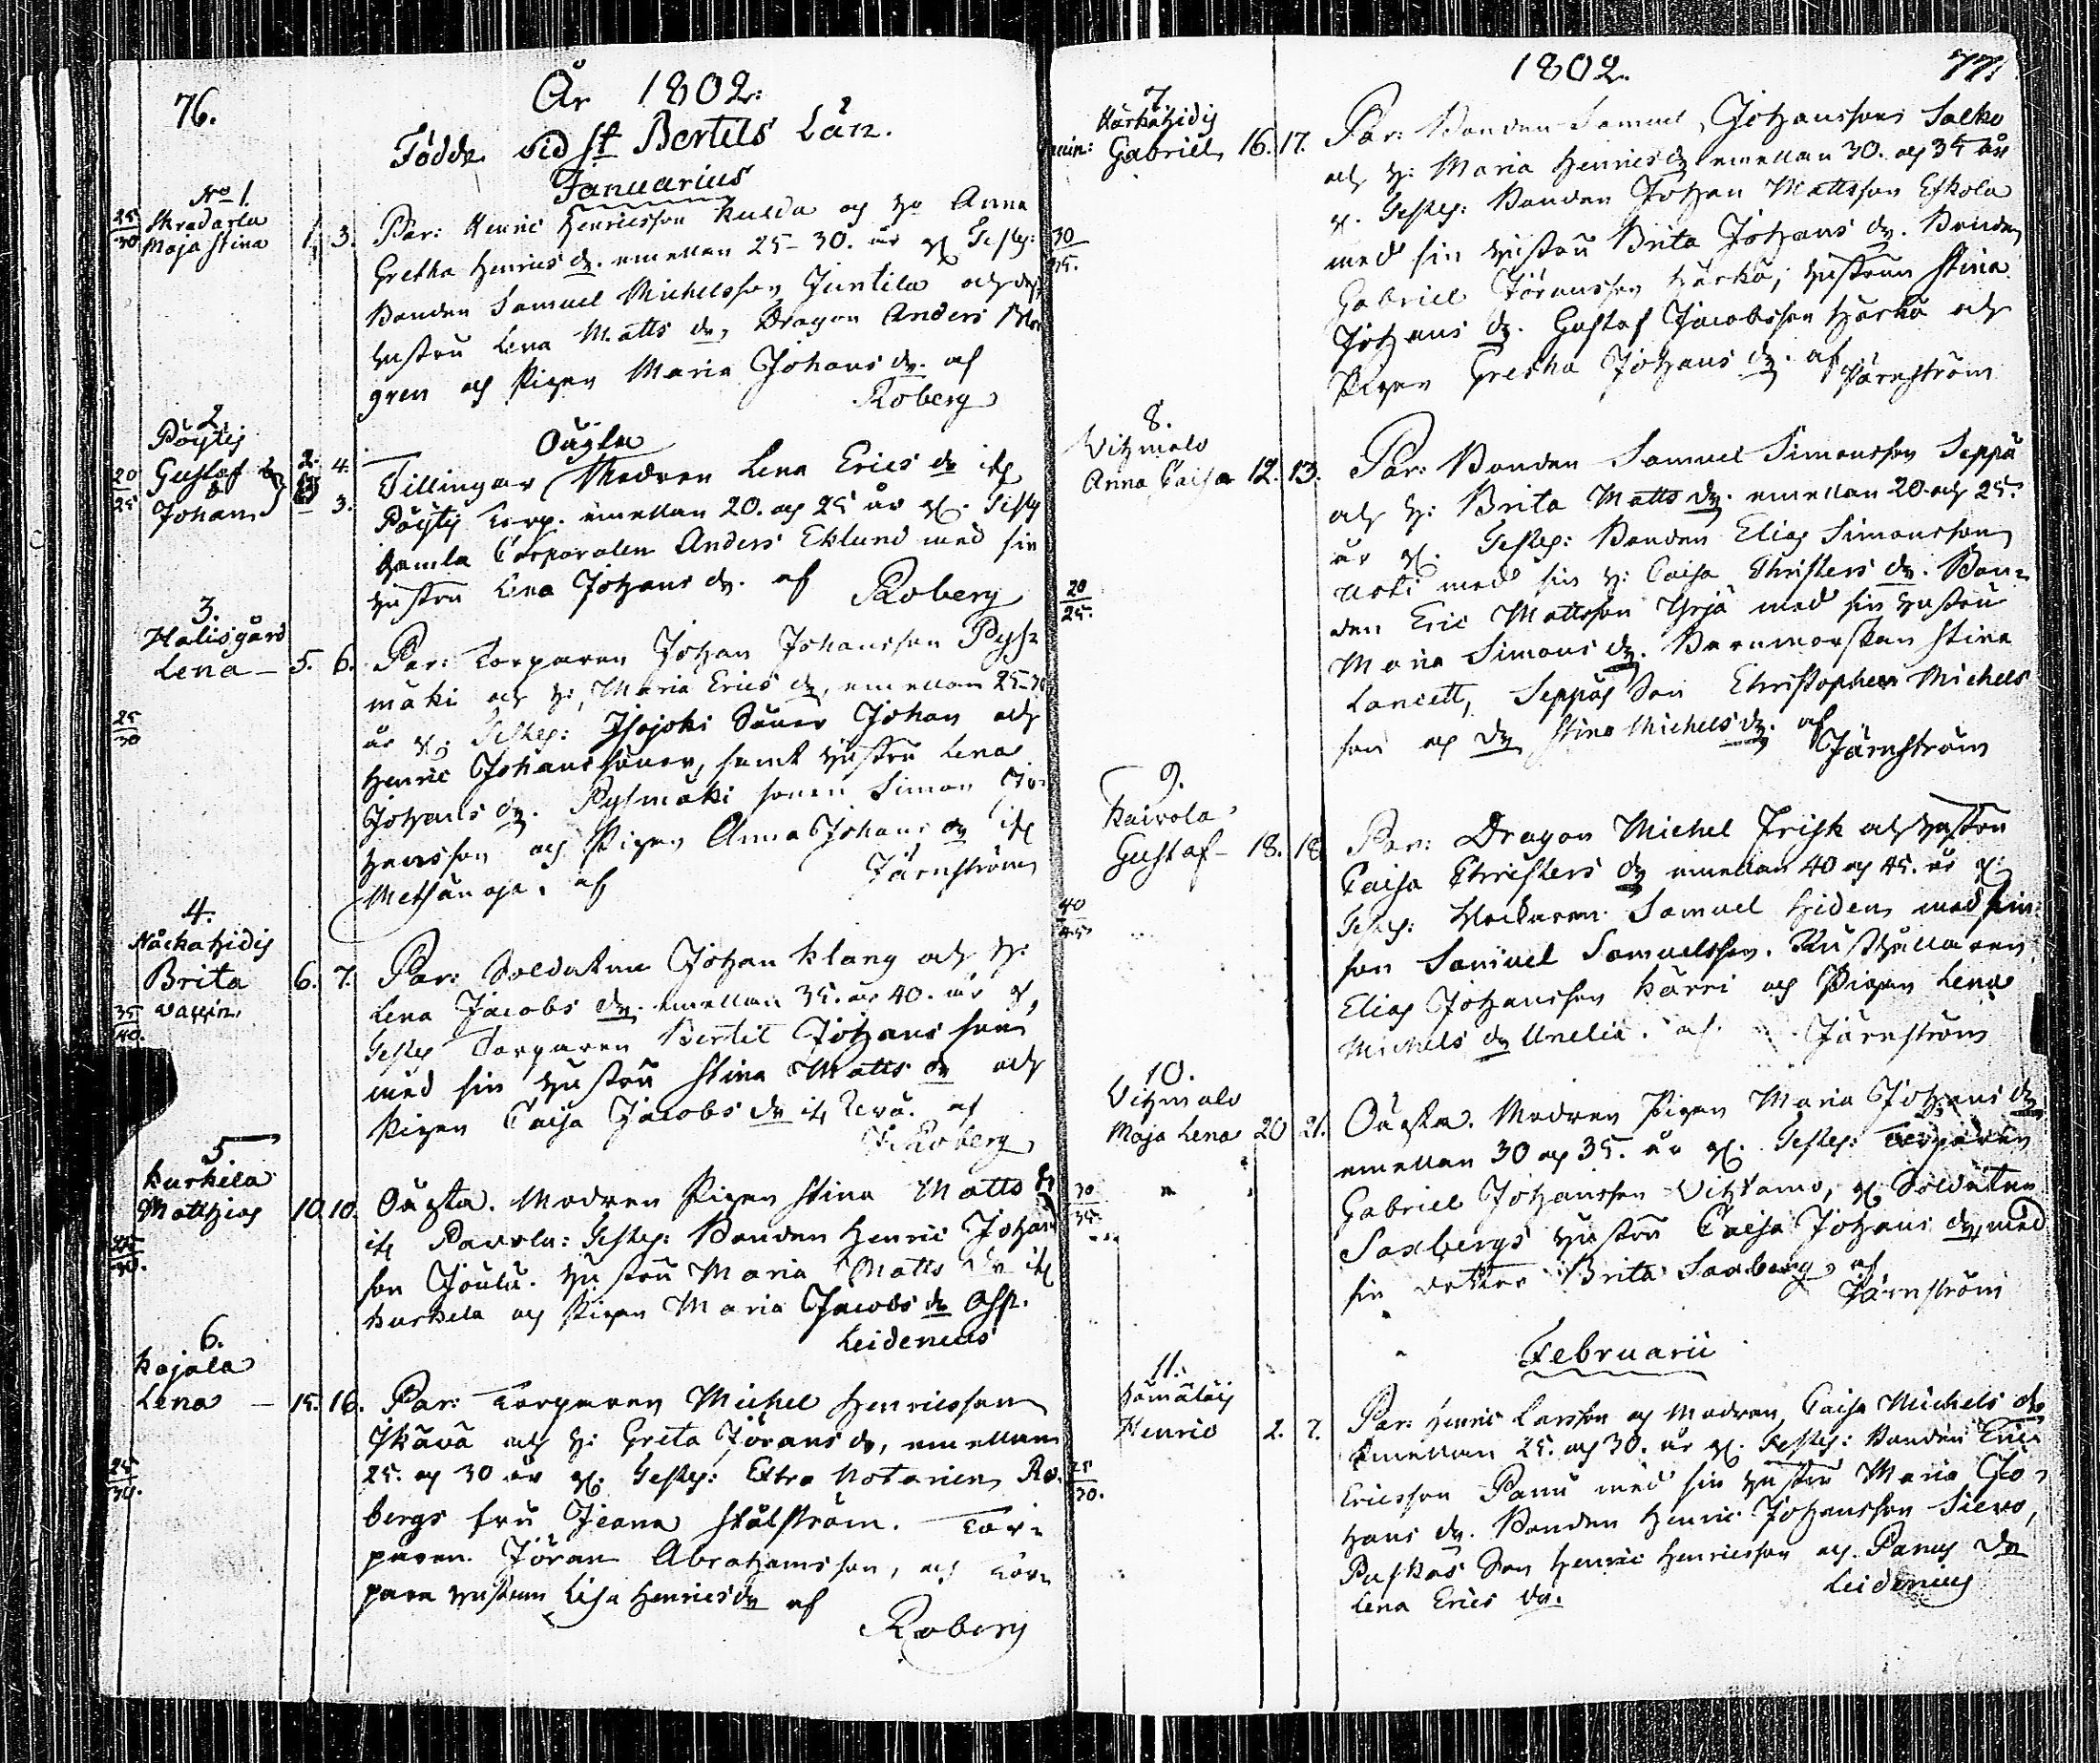 76.
År 1802.
Födde vid St Bertels Län.
Januarius
No 1.
Skradarla
Maja Stina 1. 3.
25
30
Par: Henric Henricsson Kulda och Ho Anna
Gretha Henrics dr. emellan 25-30. år gl. Testes:
Bonden Samuel Michelsson Juntila och dess
hustru Lena Matts dr, Dragon Anders
gren och Pigan Maria Johans dr. af
Roberg
2.
Pöytis
Gustaf &
Johan
2. 4.
3.
20
25
Oägta
Tillingar, Modren Lena Erics dr ifrå
Pöytis emellan 20. och 25 år gl. Test
gamla Corporalen Anders Eklund med sin
hustru Lena Johans dr. af Roberg
3.
Halisgård
Lena - 5. 6.
25
30
Par: Torparen Johan Johansson Pyss-
mäki och H: Maria Erics dr, emellan 25-30
år gl. Testes: Isojoki Söner Johan och
Henric Johanssöner, samt hustru Lena
Johans dr. Pysmäki sonen Simon Jo-
hansson och Pigan Anna Johans dr ifrå
Metsänoja. af Järnström
4.
Brita 6. 7.
vaccin.
35
40.
Par: Soldaten Johan Klang och H:
Lena Jacobs dr. emellan 35. och 40. år gl.
Testes Torparen Bertil Johansson
med sin hustru Stina Matts dr och
Pigan Caisa Jacobs dr ifrå af
Roberg
5
Kurkela
Matthias 10. 10.
Oägta. Modren Pigan Stina Matts dr
ifrå Pavola: Testes: Bonden Henric Johans
son Joulu. hustru Maria Matts dr ifrå
Kurkela och Pigan Maria Jacobs dr
Leidenius
6.
Kajala
Lena - 15. 16.
25
30.
Par: Torparen Michel Henricsson
Ikävä och H: Greta Jörans dr, emellan
25. och 30 år gl. Testes: Extra Notarien Ro-
bergs fru Jeana Stålström. Tor-
paren Jöran Abrahamsson, och Tor-
pare hustrun Lisa Henrics dr af
Roberg
1802. 77.
7
Gabriel 16. 17.
30
35.
Par: Bonden Samuel Johansson Salko
och H: Maria Henrics dr emellan 30. och 35 år
gl. Testes: Bonden Johan Mattsson Eskola
med sin hustru Brita Johans dr. Bonden
Gabriel Jöransson Härkä, hustrun Stina
Johans dr. Gustaf Jacobsson Härkä och
Pigan Gretha Johans dr. af Järnström
8.
Vihmalo
Anna Caisa 12. 13.
20
25.
Par: Bonden Samuel Simonsson Seppä
och H: Brita Matts dr. emellan 20. och 25.
år gl. Testes: Bonden Elias Simonsson
Uoti med sin H: Caisa Christers dr. Bon-
den Eric Mattsson Yrjä med sin hustru
Maria Simons dr. Barnmorskan Stina
Lancett, Seppäs Son Christopher Michels
son och dr Stina Michels dr. af
Järnström
9.
Kaivola
Gustaf - 18. 18
40
45.
Par: Dragon Michel Frisk och hustru
Caisa Christers dr emellan 40 och 45. år gl.
Testes: Klockaren Samuel Hiden med sin
son Samuel Samuelsson. Rusthållaren
Elias Johansson Kärri och Pigan Lena
Michels dr Unelia. af Järnström
10.
Vihmalo
Maja Lena 20 21.
30
35.
Oägta. Modren Pigan Maria Johans dr
emellan 30 och 35. år gl. Testes: Torparen
Gabriel Johansson Vihtamo, gl. Soldaten
Saxbergs hustru Caisa Johans dr, med
sin dotter Brita Saxberg, af
Järnström
Februarii
11.
Henric 2. 7.
25
30.
Par: Henric Larsson och Modren, Caisa Michels dr
emellan 25. och 30. år gl. Testes: Bonden Eric
Ericsson Panu med sin hustru Maria Jo-
hans dr. Bonden Henric Johansson Sievo,
Puskas Son Henric Henricsson och Panus dr
Lena Erics dr. Leidenius